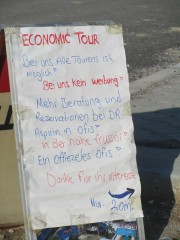 ECONOMIC TOUR
Bei uns Alle Tourens ist
möglich"
Bei uns kein werbung"
Mehr Beratung und
Rezervationen bei DR
Aspirin in Ofis"
in der nähe Trusni"
Ein Offizeles ofis"
Danke für ihr interese
Nur. 20m.